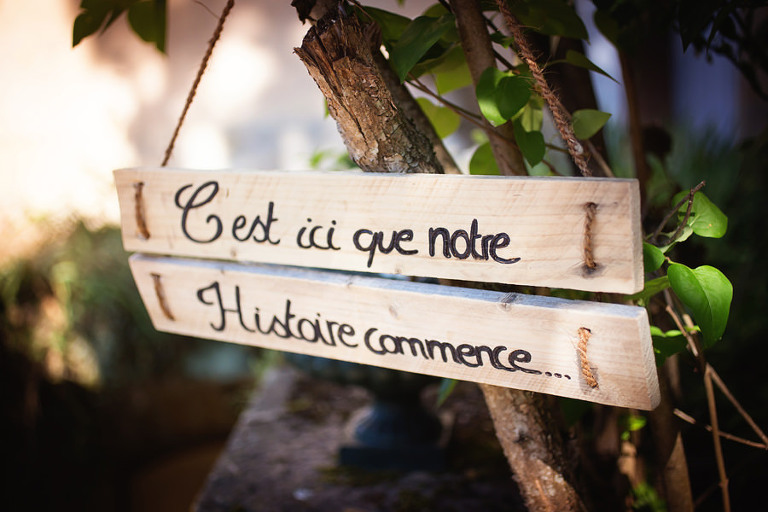 C'est ici que notre
Histoire commence...